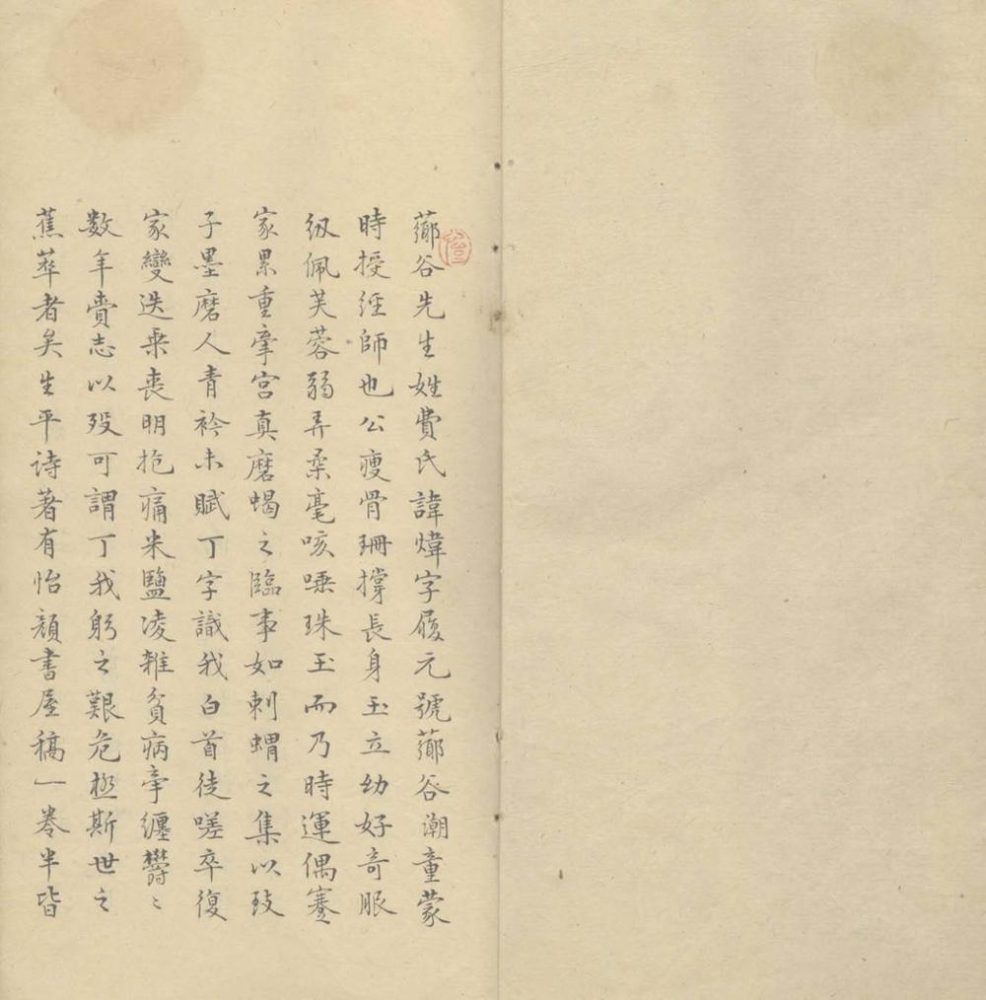 薌谷先生姓費氏諱煒字履元號薌谷潮童蒙
時授經師也公瘦骨珊撐長身玉立幼好奇服
紉佩芙蓉弱弄柔毫咳唾珠玉而乃時運偶蹇
家累重牽宮真磨蝎之臨事如刺蝟之集以致
子墨磨人青衿未賦丁字識我白首徒嗟卒復
家變迭乘喪明抱痛米鹽凌雜貧病牽纏欝〻
數年賫志以歿可謂丁我躬之艱危極斯世之
蕉萃者矣生平詩著有怡顏書屋稿一卷半皆